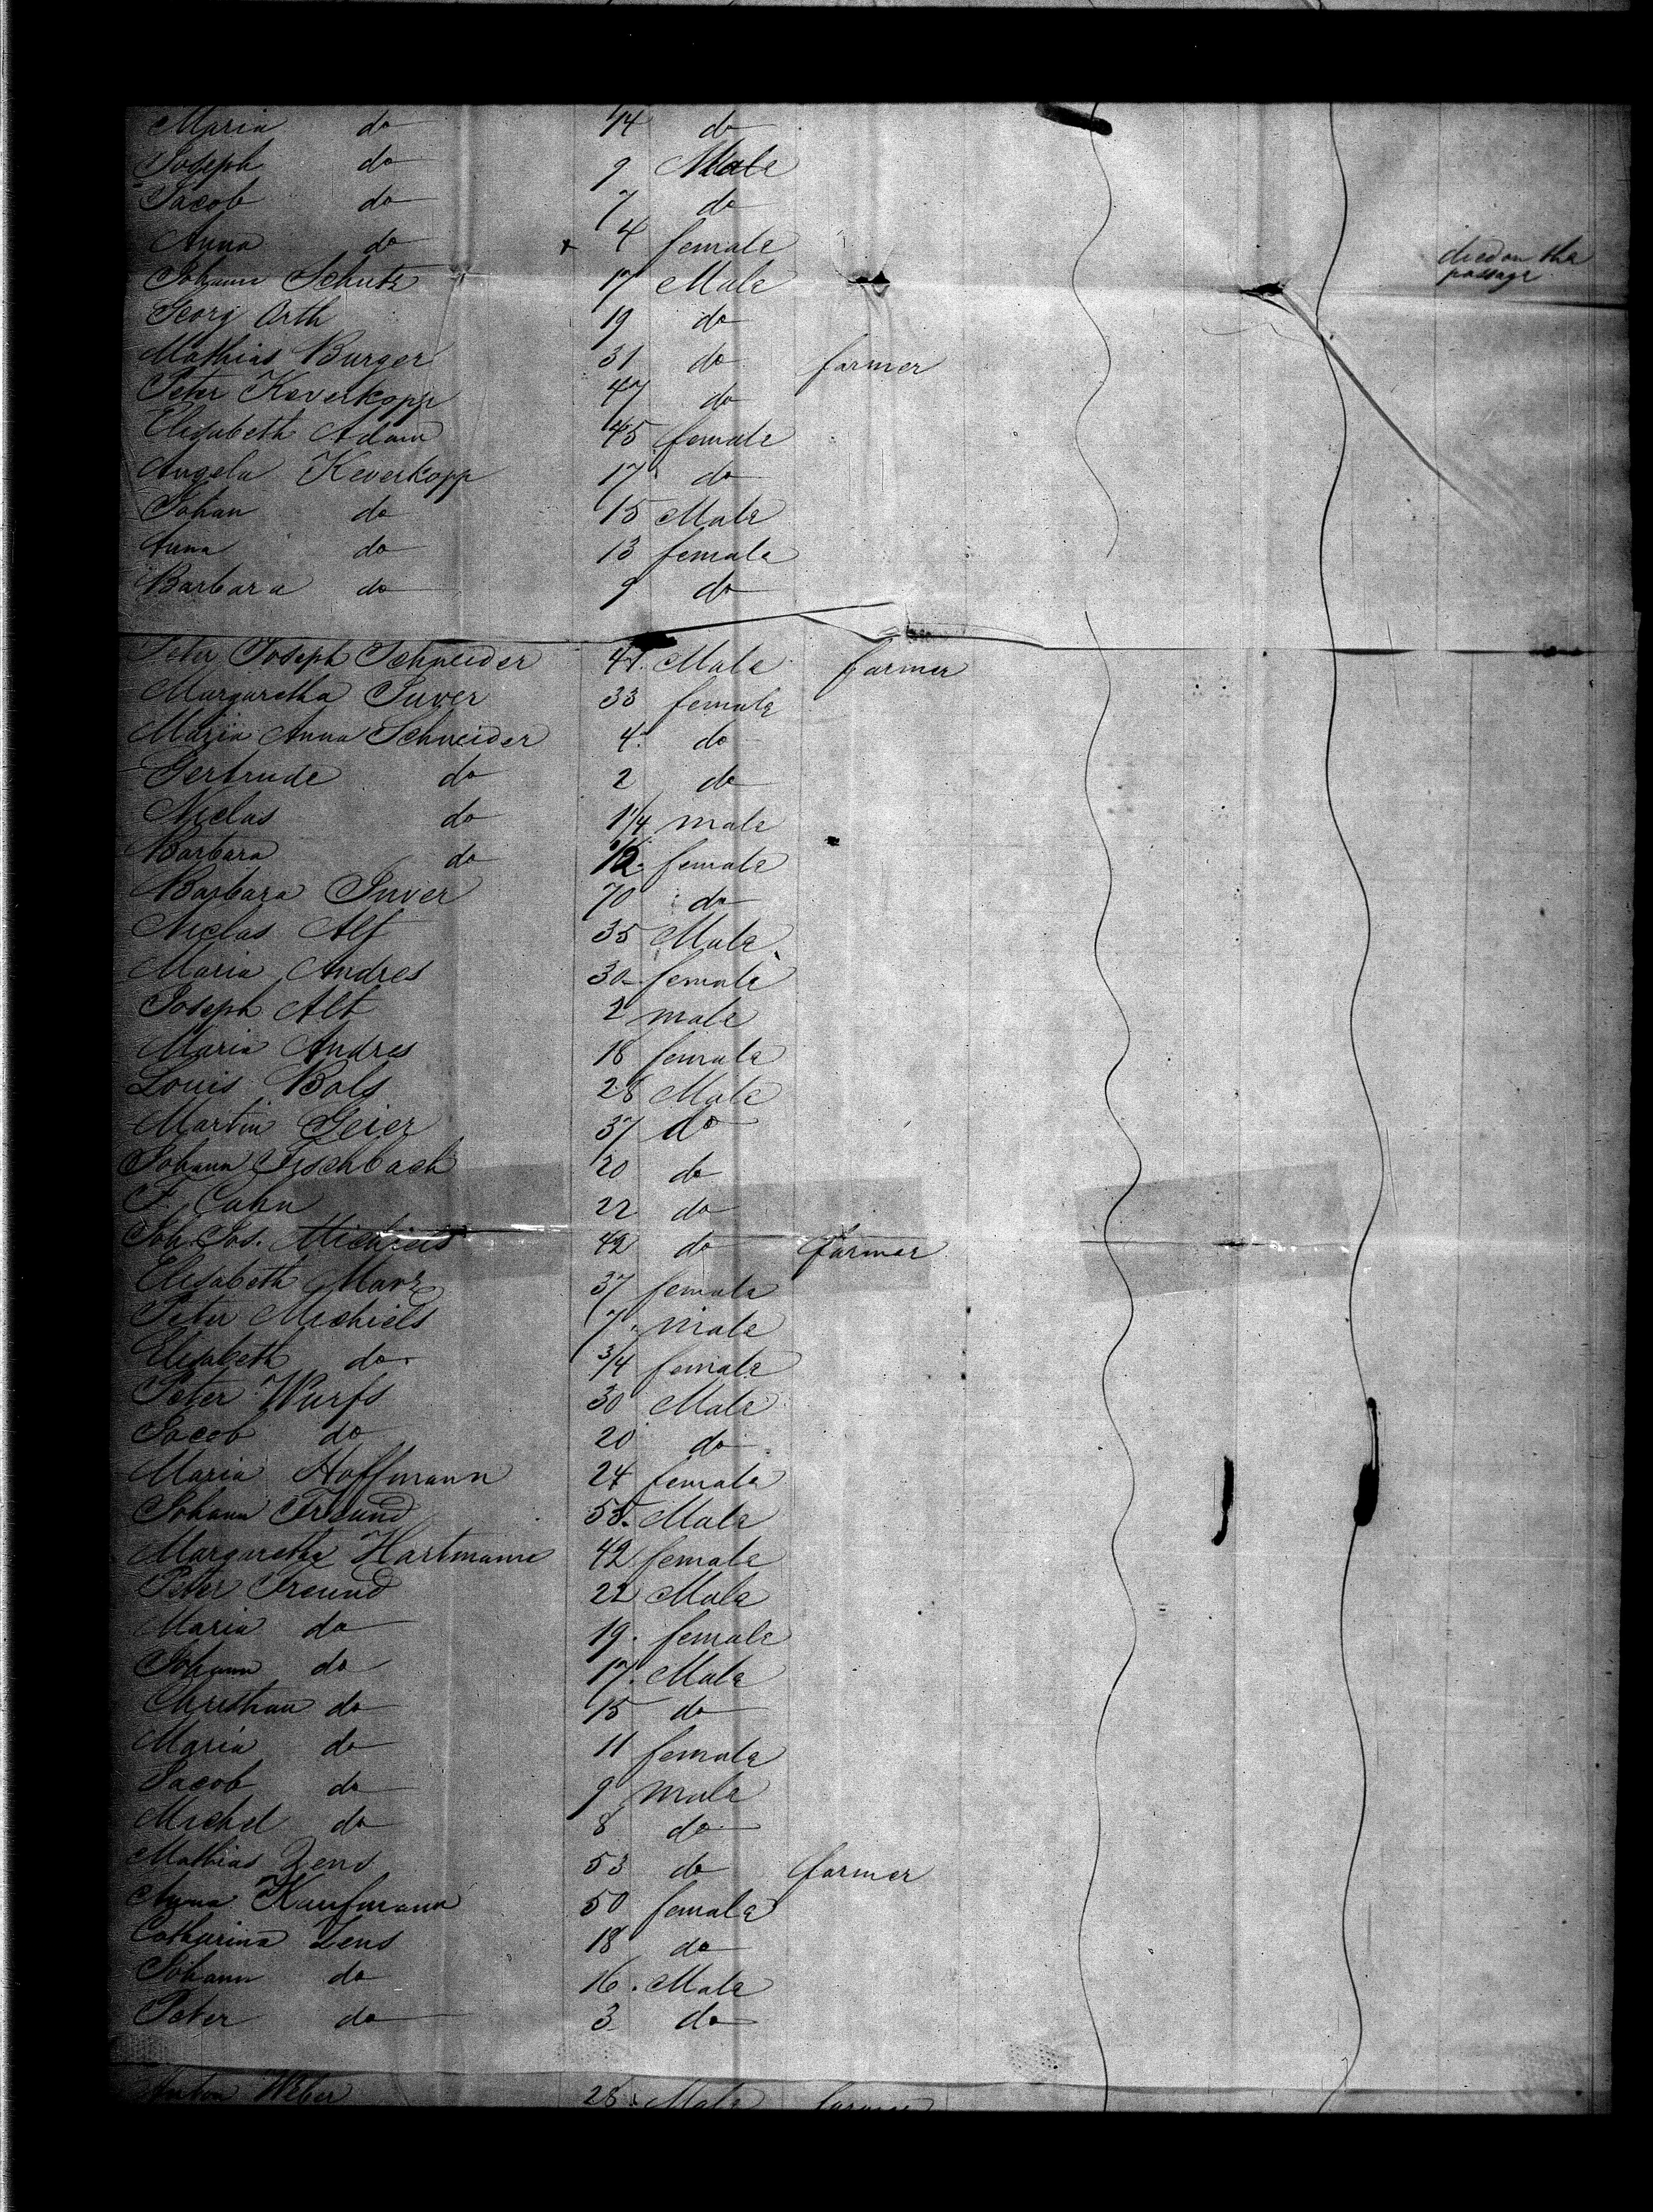 Maria do 14 do
Joseph do 9 Male
Jacob do 7 do
Anna do x 4 female died on the passage
Johann Schutz 17 Male
Georg Orth 19 do
Mathias Burger 31 do farmer
Peter Keverkopp 47 do
Elisabeth Adam 45 female
Angela Keverkopp 17 do
Johan do 15 Male
Anna do 13 female
Barbara do 9 do
Peter Joseph Schneider 41 Male farmer
Margaretha Juver 33 female
Maria Anna Schneider 4 do
Gertrude do 2 do
Niclas do 1 1/4 male
Barbara do female
Barbara Juver 70 do
Niclas Alf 35 Male
Maria Andres 30 female
Joseph Alt 2 male
Maria Andres 18 female
Louis Bols 28 Male
Martin Geier 37 do
Johann Fischbach 20 do
F. Cahn 22 do
Joh. Jos. Michiels 42 do farmer
Elisabeth Marx 37 female
Peter Michiels 7 male
Elisabeth do. 3/4 female
Peter Wurfs 30 Male
Jacob do 20 do
Maria Hoffmann 24 female
Johann Freund 55. Male
Margaretha Hartmann 42 female
Peter Freund 22 Male
Maria do 19. female
Johann do 17. Male
Christian do 15 do
Maria do 11 female
Jacob do 9 male
Michel do 8 do
Mathias Zens 53 do farmer
Anna Kaufmann 50 female
Catharina Zens 18 do
Johann do 16. Male
Peter do 3 do
Anton Weber 28 Male farmer